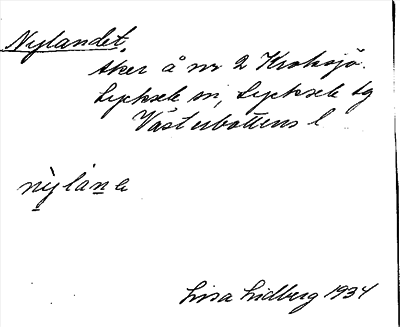 Nylandet.
åker å nr 2 Kroksjö.
Lycksele sn, Lycksele lg
Västerbottens l
Lisa Lidberg 1934